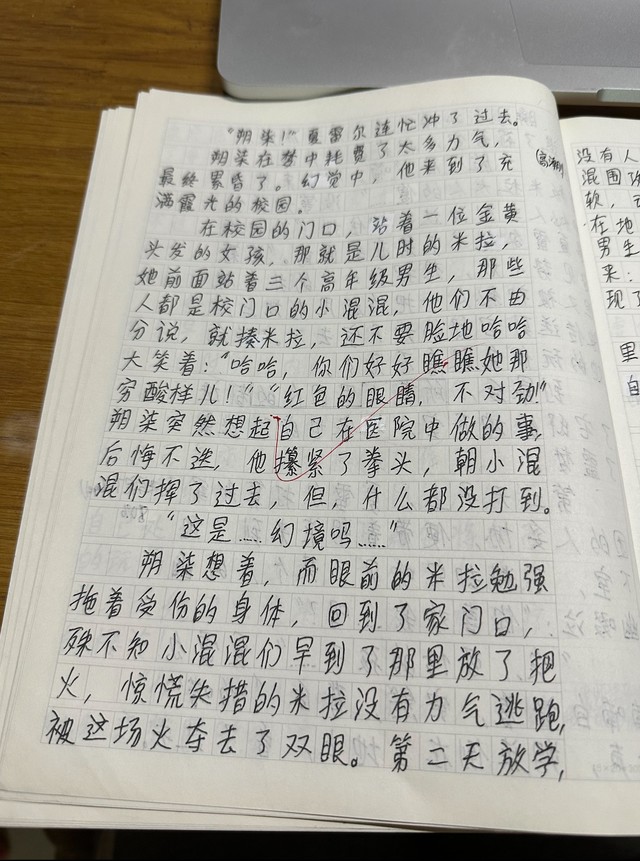 “朔柒！”夏雷尔连忙冲了过去。
朔柒在梦中耗费了太多力气，
最终累昏了。幻觉中，他来到了充
满霞光的校园。
在校园的门口，站着一位金黄
头发的女孩，那就是儿时的米拉，
她前面站着三个高年级男生，那些
人都是校门口的小混混，他们不由
分说，就揍米拉，还不要脸地哈哈
大笑着：“哈哈，你们好好瞧瞧她那
穷酸样儿！”“红色的眼睛，不对劲！”
朔柒突然想起自己在医院中做的事，
后悔不迭，他攥紧了拳头，朝小混
混们挥了过去，但，什么都没打到。
“这是……幻境吗……”
朔柒想着，而眼前的米拉勉强
拖着受伤的身体，回到了家门口，
殊不知小混混们早到了那里放了把
火，惊慌失措的米拉没有力气逃跑，
被这场火夺去了双眼。第二天放学，
没有人
混围攻
软，
在地
男生
来：
现了
里